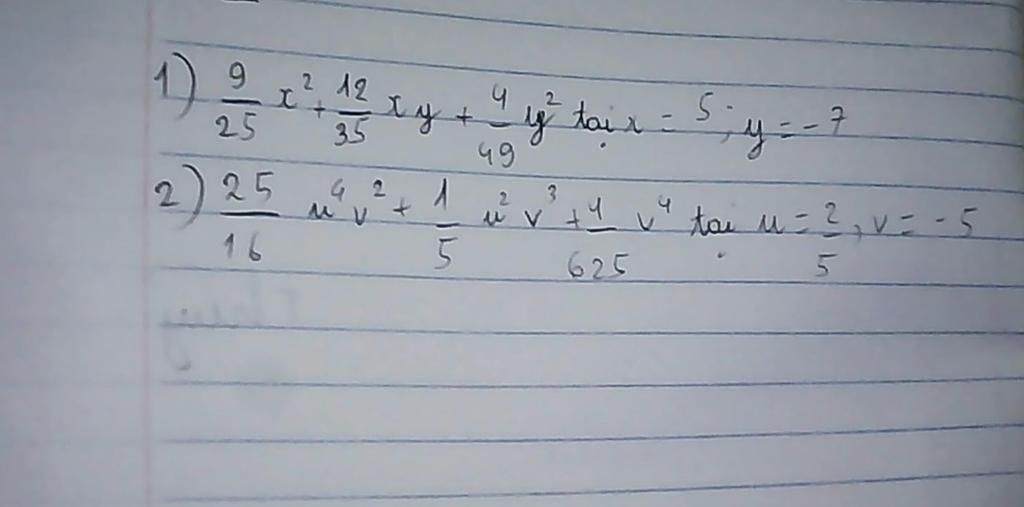 1) 9/25 x² + 12/35 xy + 4/49 y² tại x = 5; y = -7
2) 25/16 u⁴v² + 1/5 u²v³ + 4/625 v⁴ tại u = 2/5, v = -5